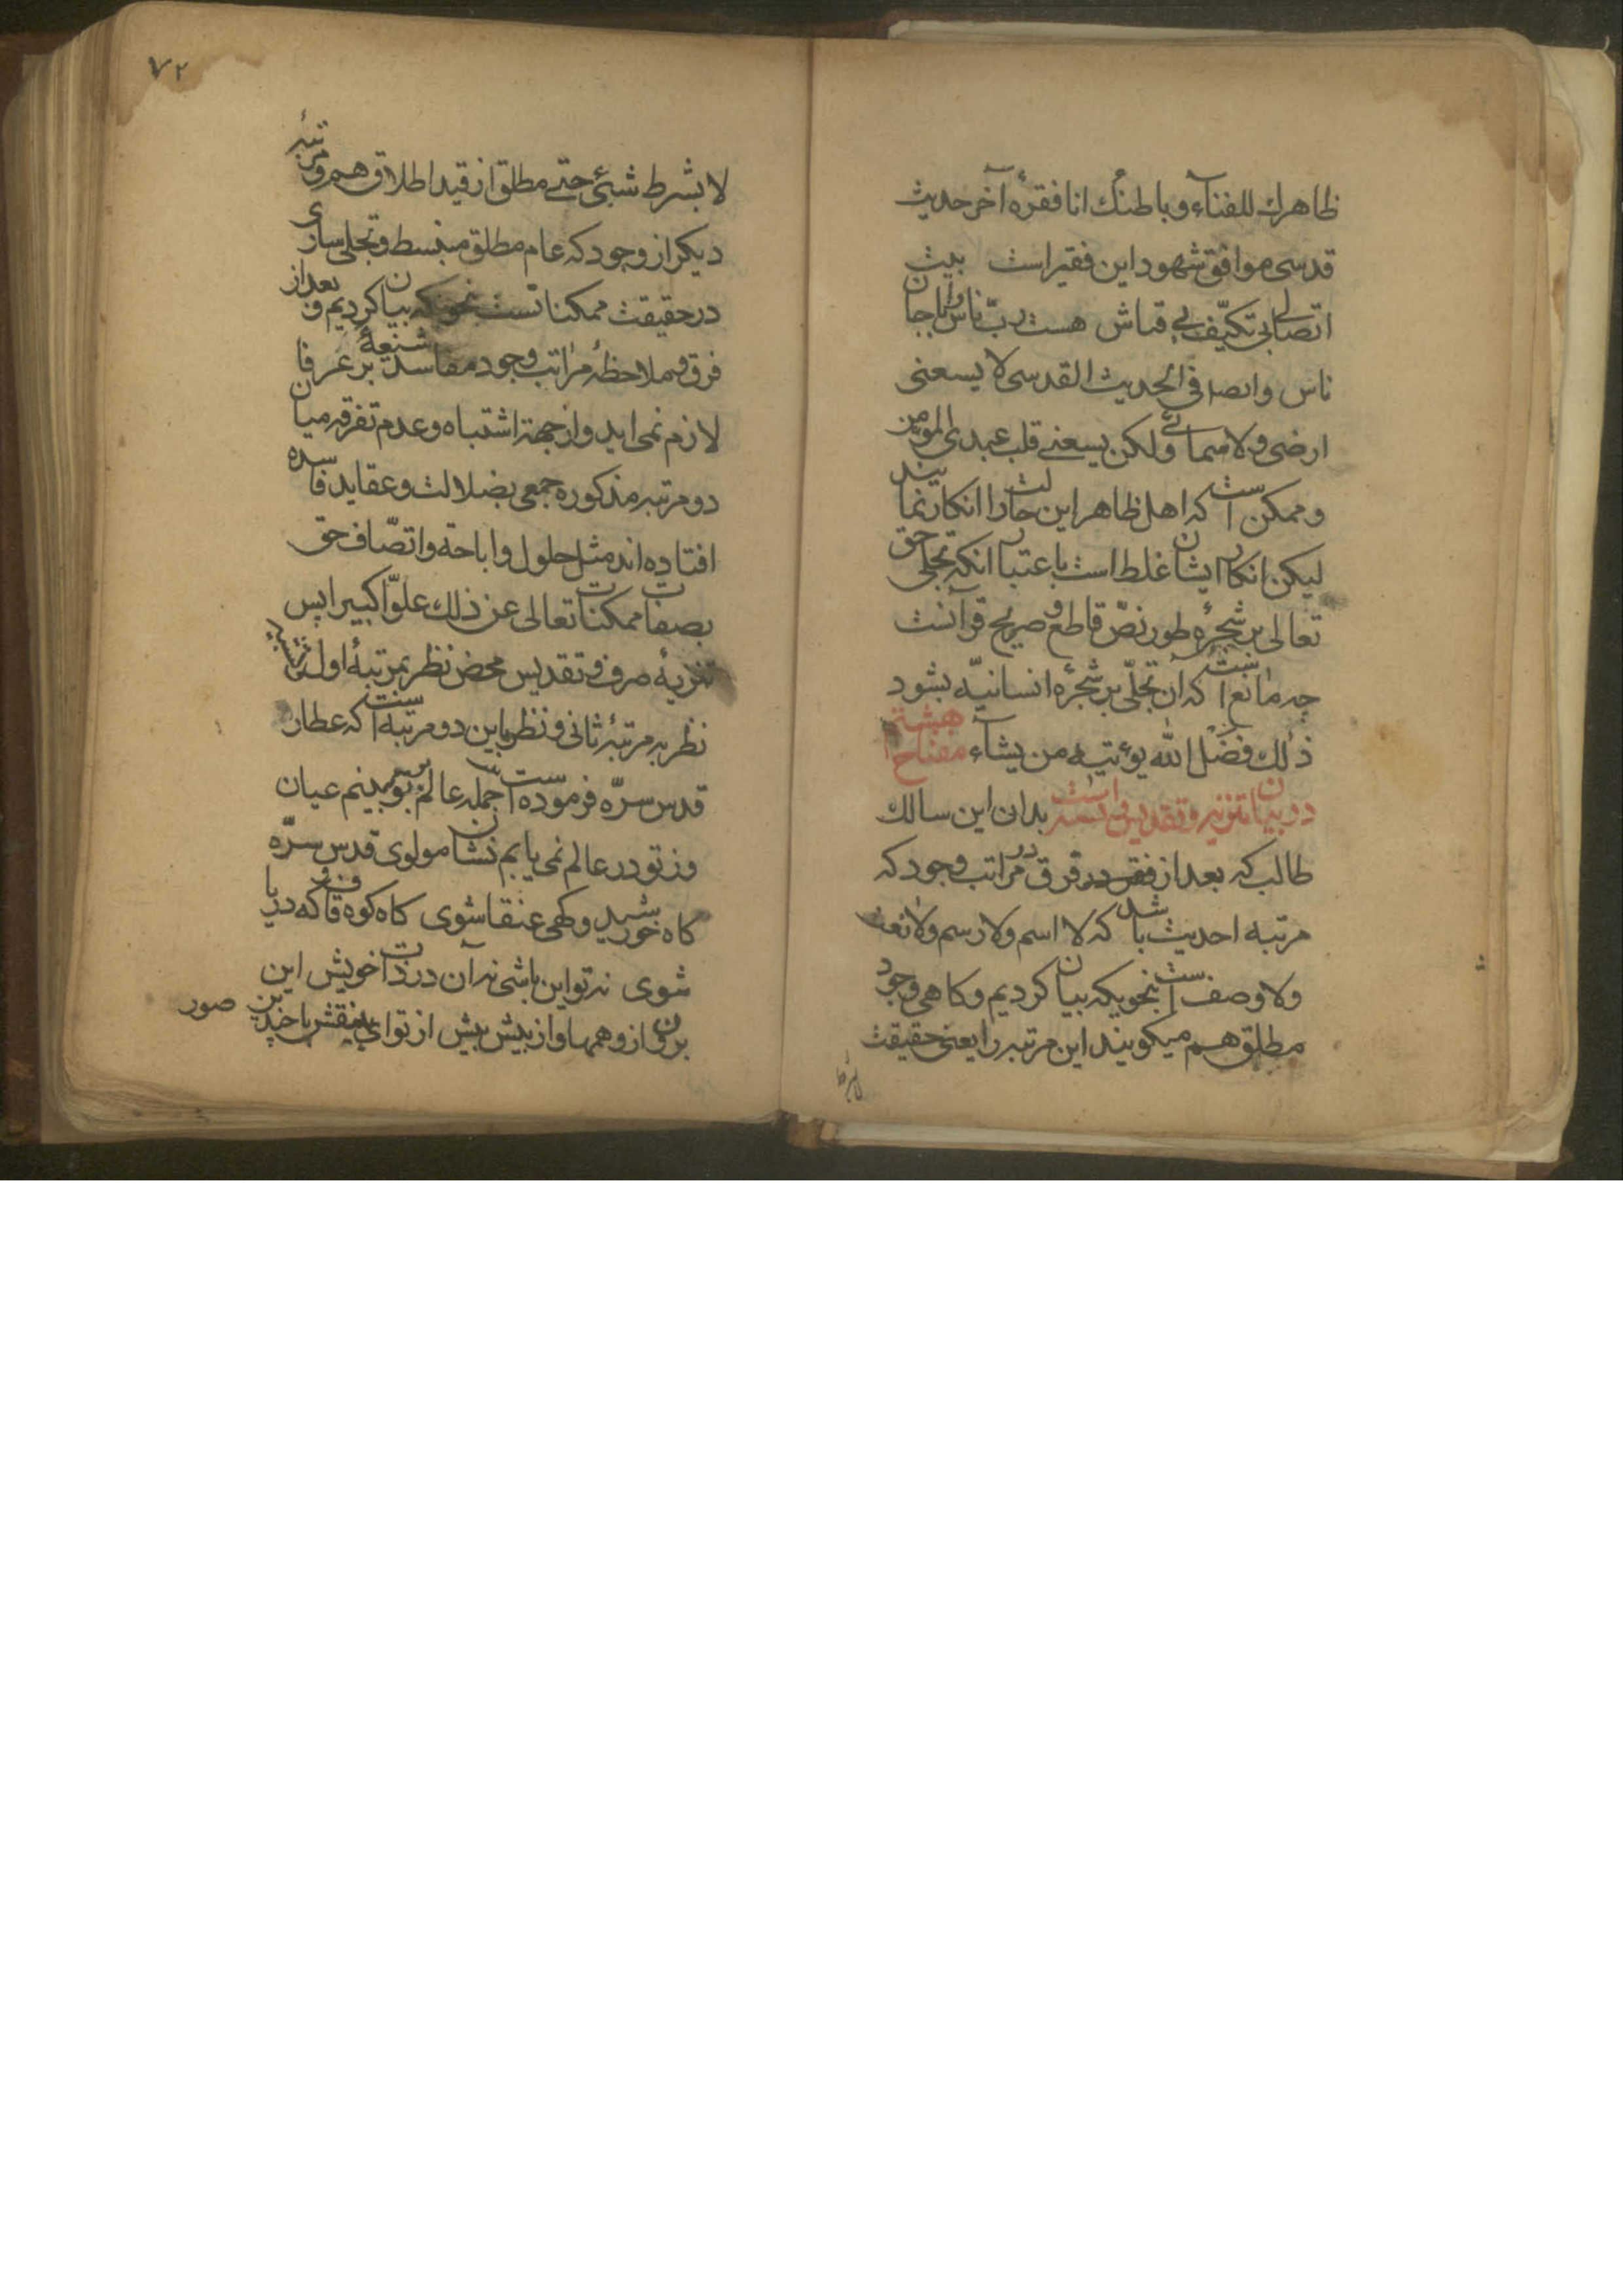 ظاهرك للفنآء و باطنك انا فقرهٔ آخر حديث
قدسى موافق شهود اين فقير است بيت
اتصالى بى تكيّف بى قياس هست ربّ ناس را با جان
ناس و ايضا فى الحديث القدسى لا يسعنى
ارضى و لا سمائى و لكن يسعنى قلب عبدى المؤمن
و ممكن است كه اهل ظاهر اين حالت را انكار نمايند
ليكن انكار ايشان غلط است باعتبار انكه تجلى حق
تعالى بر شجرهٔ طور نصّ قاطع و صريح قرآنست
چه مانع است كه ان تجلّى بر شجرهٔ انسانيّه بشود
ذلك فضل الله يؤتيه من يشآء مفتاح هشتم
در بيان تنزيه و تقديس است بدان اين سالك
طالب كه بعد از فرق در مراتب وجود كه
مرتبه احديث باشد كه لا اسم و لا رسم و لا نعت
و لا وصف است بنحويكه بيان كرديم و كاهى وجود
مطلق هم ميكويند اين مرتبه را يعنى حقيقت
لابشرط
٧٢
لا بشرط شيئ حتى مطلق از قيد اطلاق هم و مرتبهٔ
ديكر از وجود كه عام مطلق منبسط و تجلى سارى
در حقيقت ممكنا تست بنحويكه بيان كرديم و بعد از
فرق و ملاحظهٔ مراتب وجود مفاسد شنيعهٔ بر عرفا
لازم نمى ايد و از جهة اشتباه و عدم تفرقه ميان
دو مرتبه مذكوره جمعى بضلالت و عقايد فاسده
افتاده اند مثل حلول و اباحة و اتصّاف حق
بصفات ممكنات تعالى عن ذلك علوّا كبيرا پس
تنزيهٔ صرف و تقديس محض نظر بمرتبهٔ اول
نظر به مرتبهٔ ثانى و نظر باين دو مرتبه است كه عطار
قدس سرّه فرموده است جمله عالم بتو بينم عيان
وز تو در عالم نمى يابم نشان مولوى قدس سرّه
كاه خورشيد و كهى عنقا شوى كاه كوه قاف و كه دريا
شوى نه تو اين باشى نه آن در ذات خويش اين
برون از وهمها و از بيش بيش از تو اى بينقش با چندين صور